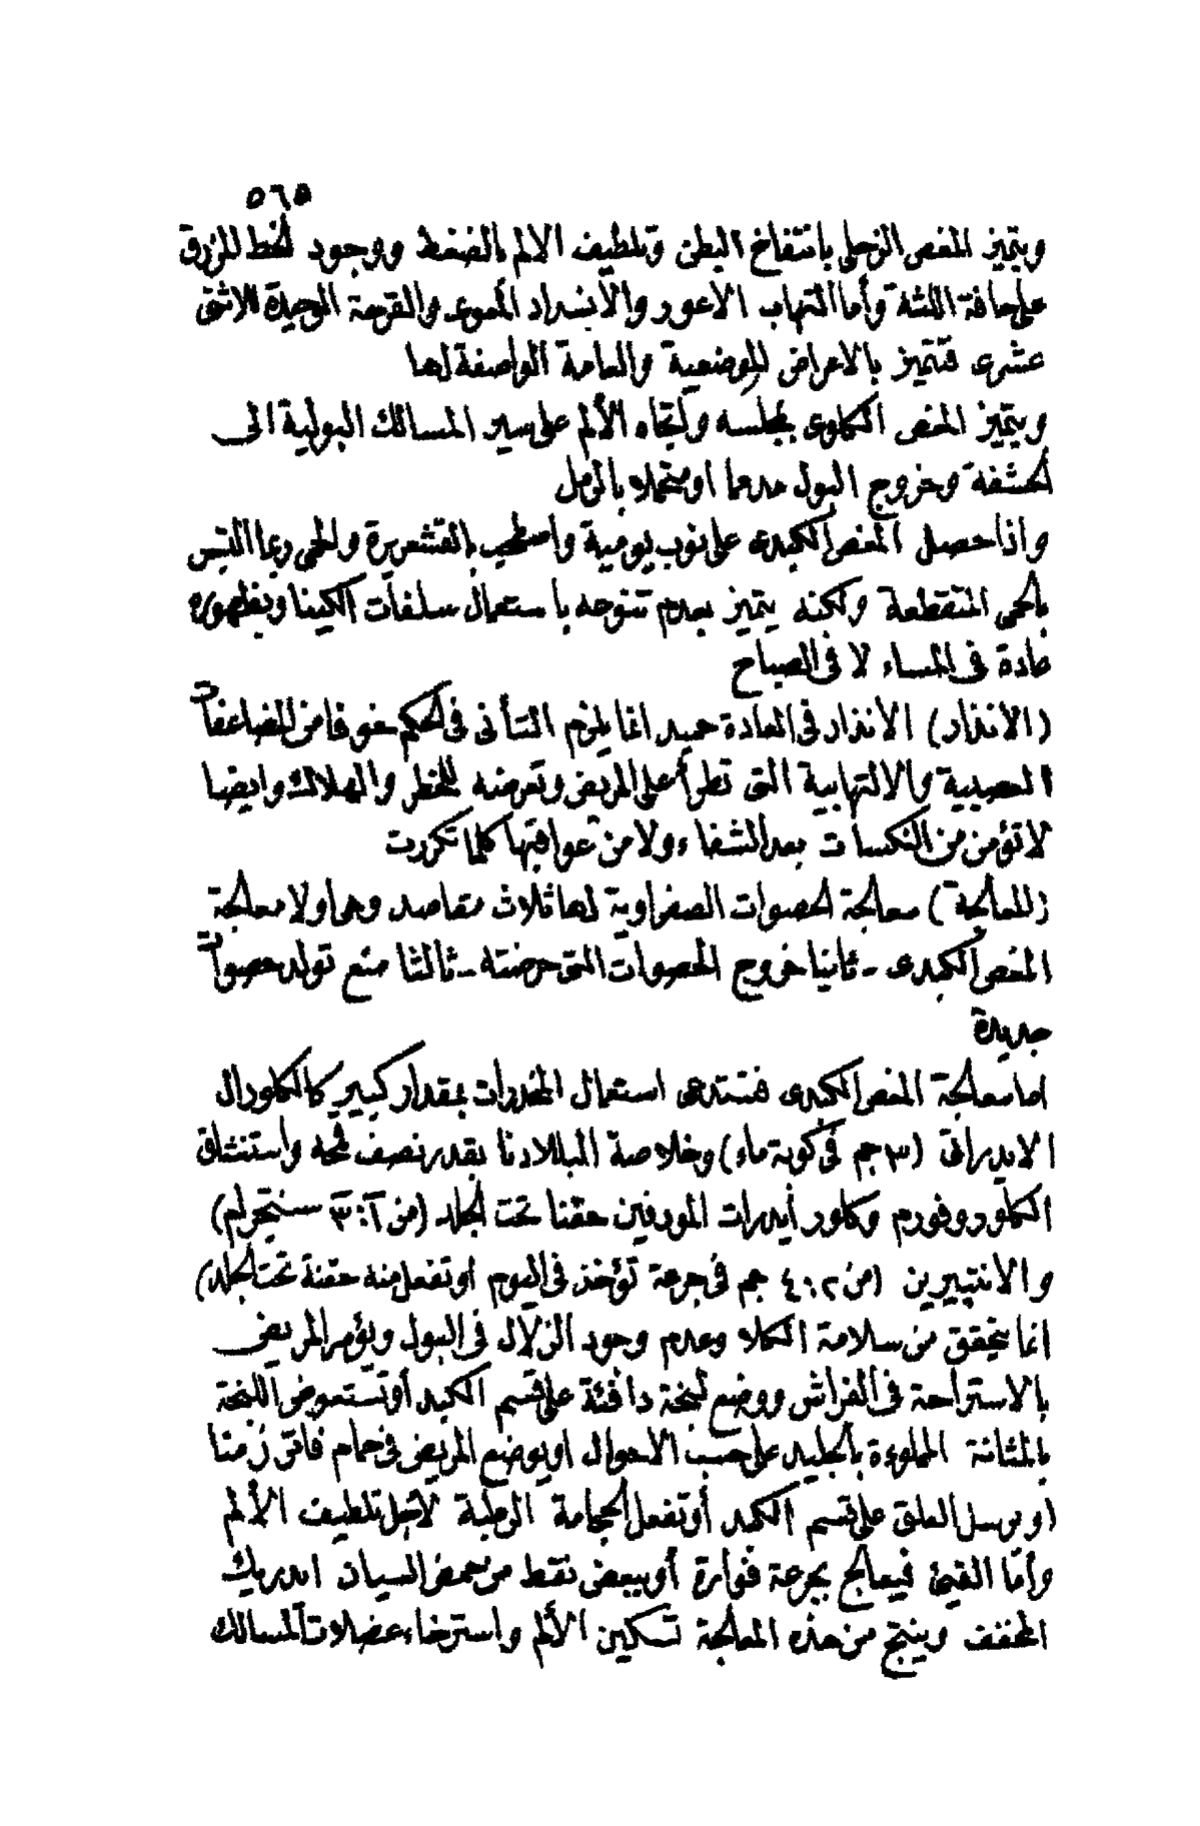 ٥٦٥
ويتميز المغص الزحلى بانتفاخ البطن وتلطيف الالم بالضغط ووجود الخط المزرق
على حافة اللثة وأما التهاب الاعور والأنسداد المعوى والقرحة الوحيدة للاثنى
عشرى فتتميز بالاعراض الموضعية والعامة الواصفة لها
ويتميز المغص الكلوى بمجلسه واتجاه الألم على سير المسالك البولية الى
الحشفة وخروج البول مدمما او متحملا بالرمل
واذا حصل المغص الكبدى على نوب يومية واصطحب بالقشعريرة والحمى ربما التبس
بالحمى المتقطعة ولكنه يتميز بعدم تنوعه باستعمال سلفات الكينا وبظهوره
عادة فى المساء لا فى الصباح
(الانذار) الانذار فى العادة حميد انما يلزم التأنى فى الحكم خوفا من المضاعفات
العصبية والالتهابية التى تطرأ على المريض وتعرضه للخطر والهلاك وايضا
لا تؤمن من النكسات بعد الشفاء ولا من عواقبها كلما تكررت
(المعالجة) معالجة الحصوات الصفراوية لها ثلاث مقاصد وهى اولا معالجة
المغص الكبدى - ثانيا خروج الحصوات التى حرضته - ثالثا منع تولد حصوات
جديدة
اما معالجة المغص الكبدى فتستدعى استعمال المخدرات بمقدار كبير كالكلورال
الايدراتى (٣ جم فى كوبة ماء) وخلاصة البللادنا بقدر نصف قمحه واستنشاق
الكلوروفورم وكلور أيدرات المورفين حقنا تحت الجلد (من ٢ : ٣ سنتجرام)
والانتيپيرين (من ٢ : ٤ جم فى جرعة تؤخذ فى اليوم او تفعل منه حقنة تحت الجلد)
انما يتحقق من سلامة الكلا وعدم وجود الزلال فى البول ويؤمر المريض
بالاستراحة فى الفراش ووضع لبخة دافئة على قسم الكبد أو تستعوض اللبخة
بالمثانة المملوءة بالجليد على حسب الاحوال او يوضع المريض فى حمام فاتر زمنا
او يرسل العلق على قسم الكبد أو تفعل الحجامة الرطبة لاجل تلطيف الألم
وأما القيئ فيعالج بجرعة فوارة أو ببعض نقط من حمض السيان ايدريك
المخفف وينتج من هذه المعالجة تسكين الألم واسترخاء عضلات المسالك